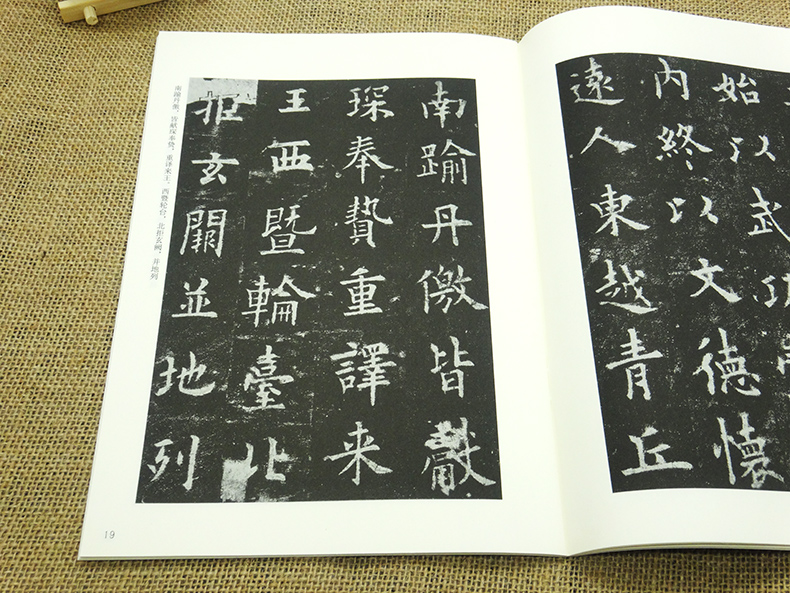 始以武功
内終以文德懷
遠人東越青丘
南踰丹徼皆獻
琛奉贄重譯来
王西暨輪臺北
拒玄闕並地列
南踰丹徼,皆献琛奉贽,重译来王,西暨轮台,北拒玄阙,并地列
19